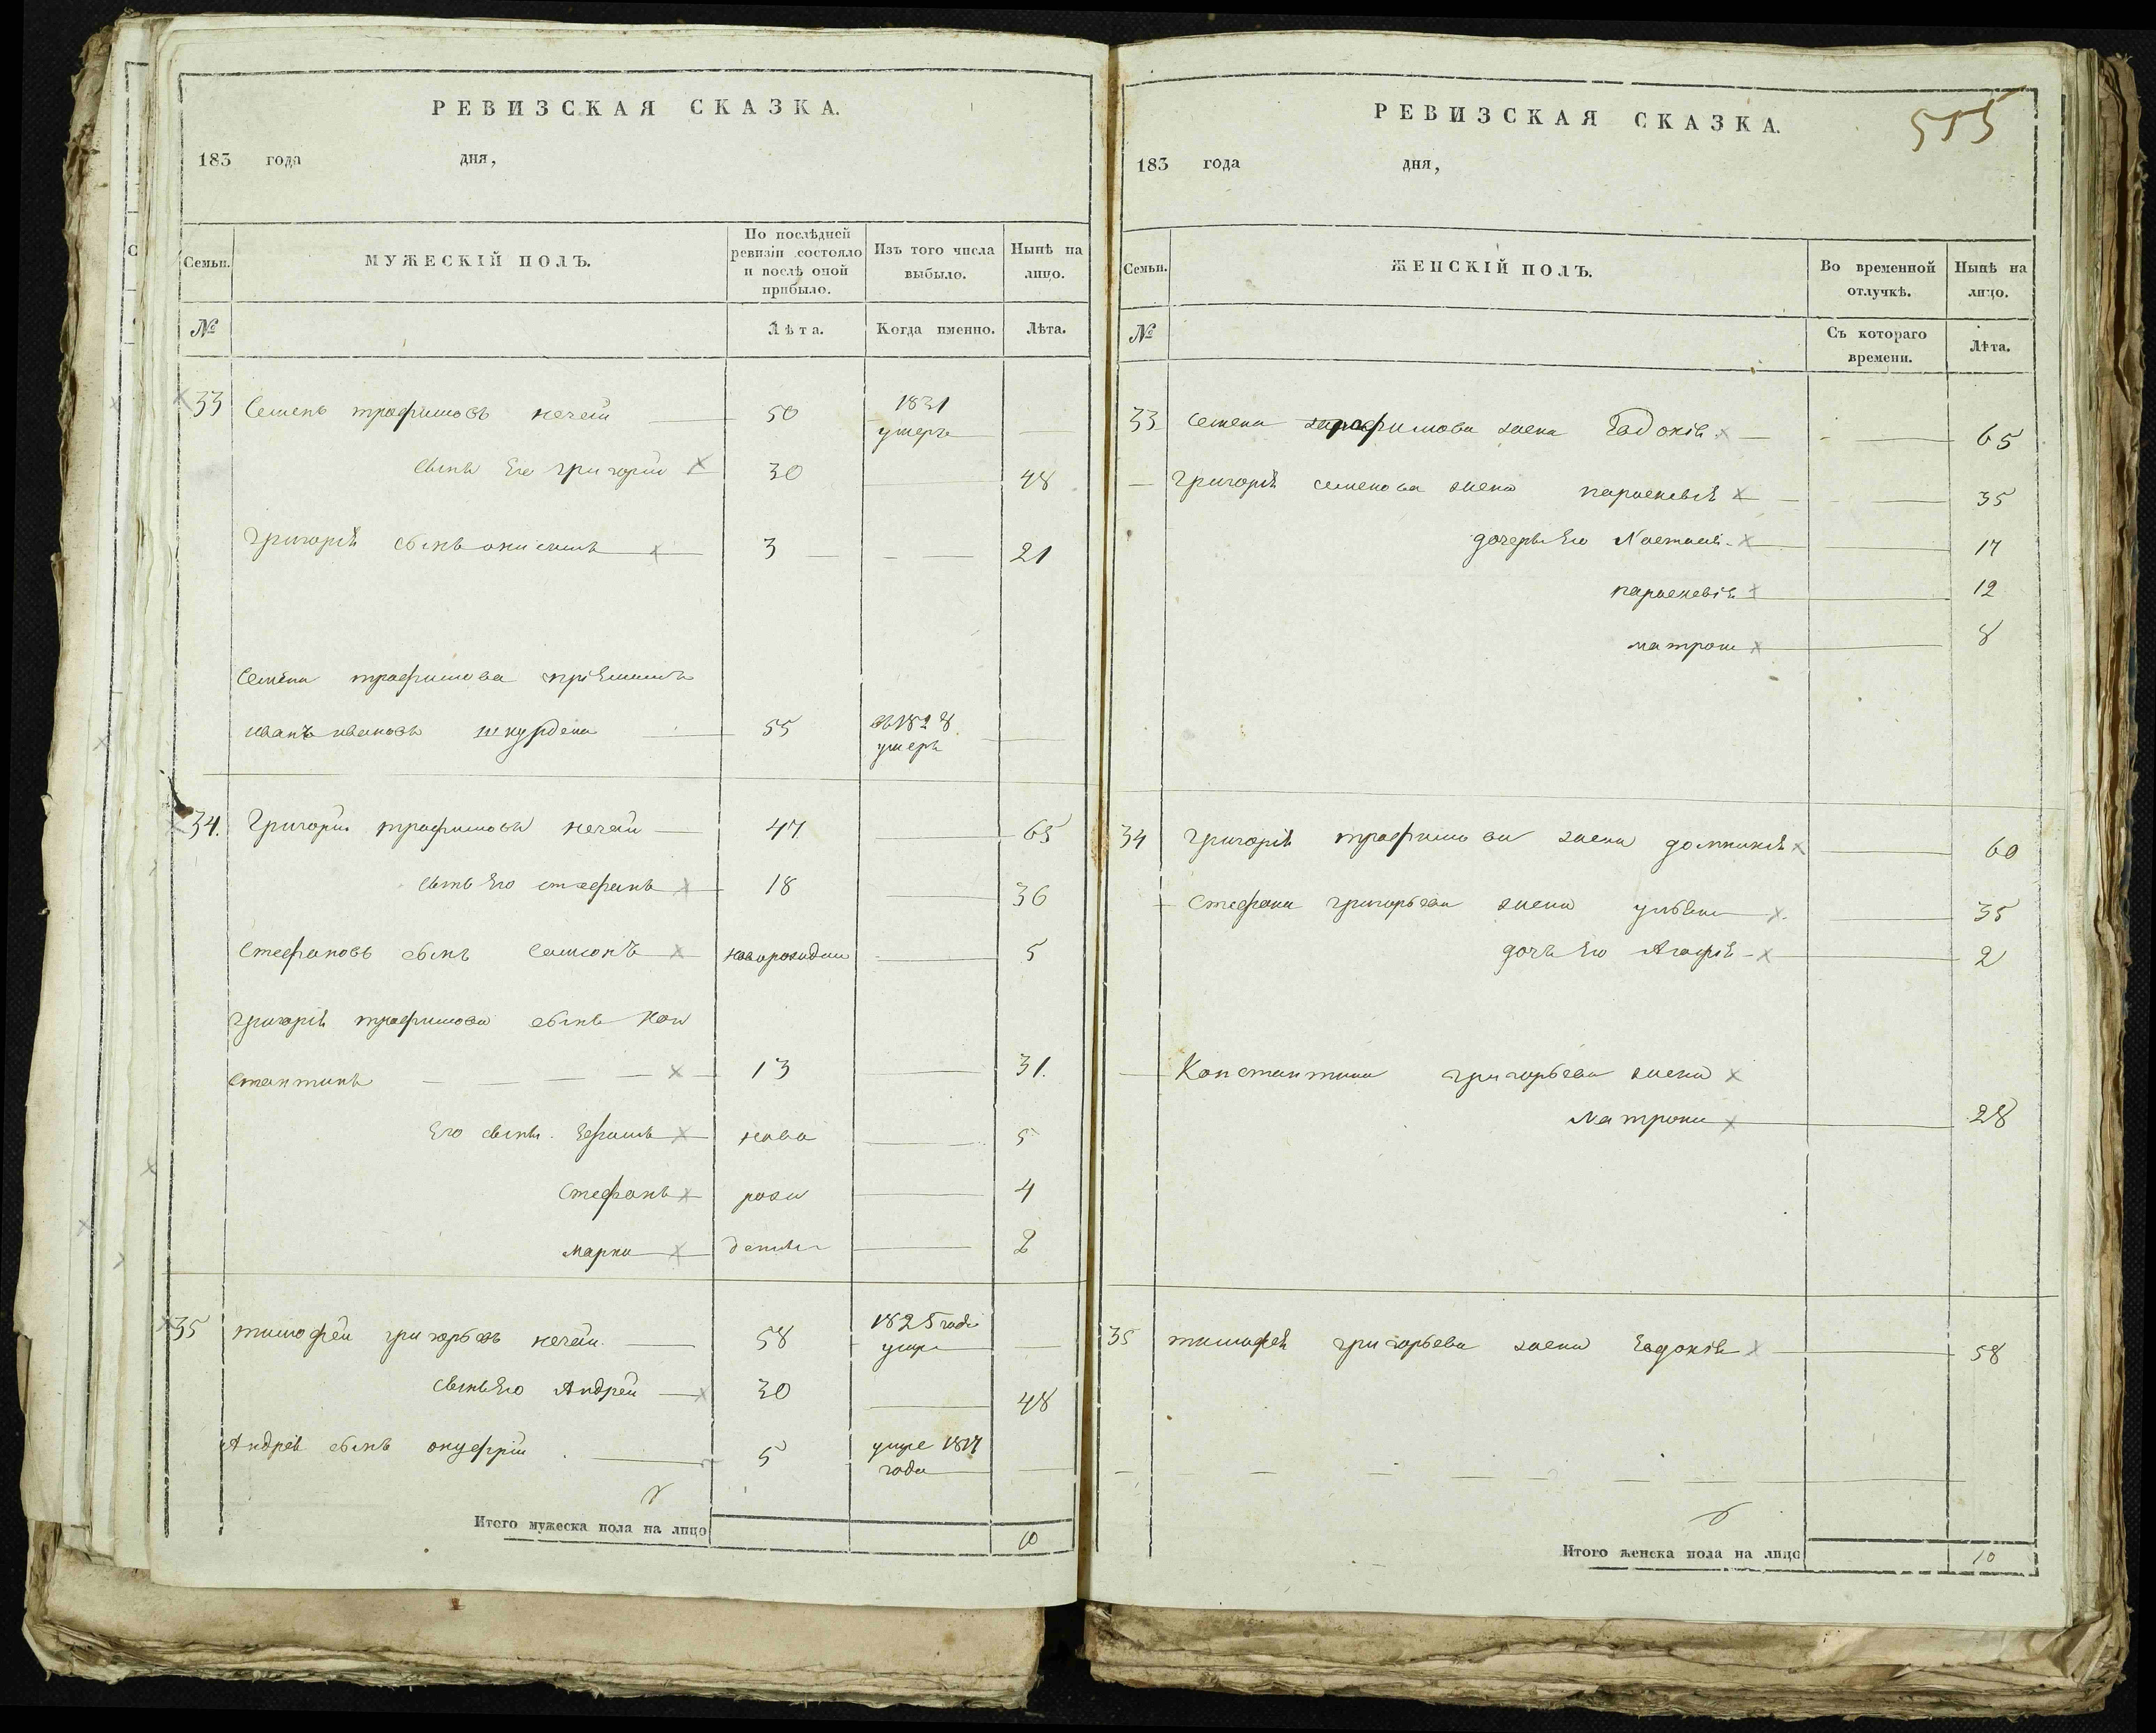 РЕВИЗСКАЯ СКАЗКА.
183 года дня,
Семьи. МУЖЕСКІЙ ПОЛЪ. По послѣдней ревизіи состояло и послѣ оной прибыло. Изъ того числа выбыло. Нынѣ на лицо.
№ Лѣта. Когда именно. Лѣта.
33 Семенъ трофимовъ нечай 50 1831 умеръ
сынъ Его григорій 30 48
Григорія сынъ онисимъ 3 21
Семена трофимова пріемышъ
иванъ ивановъ 55 въ 1828 умеръ
34. Григорій трофимовъ нечай 47 65
сынъ Его стефанъ 18 36
Стефановъ сынъ Самсонъ новорожденъ 5
Григорія трофимова сынъ Кон
стантинъ 13 31.
Его сынъ. Ефимъ ново 5
Стефанъ рож 4
марко денные 2
35 тимофей григорьевъ нечай. 58 1825 года умре
сынъ Его Андрей 30 48
Андрея сынъ онуфрій 5 умре 1817 года
Итого мужеска пола на лицо 10
РЕВИЗСКАЯ СКАЗКА.
555
183 года дня,
Семьи. ЖЕНСКІЙ ПОЛЪ. Во временной отлучкѣ. Нынѣ на лицо.
№ Съ котораго времени. Лѣта.
33 Семена трофимова жена Евдокія 65
Григорія семенова жена параскевія 35
дочери Его Настасія 17
параскевія 12
матрона 8
34 Григорія трофимова жена домникія 60
Стефана григорьева жена уліяна 35
дочь Его Агафія 2
Константина григорьева жена
Матрона 28
35 тимофея григорьева жена Евдокія 58
Итого женска пола на лицо 10